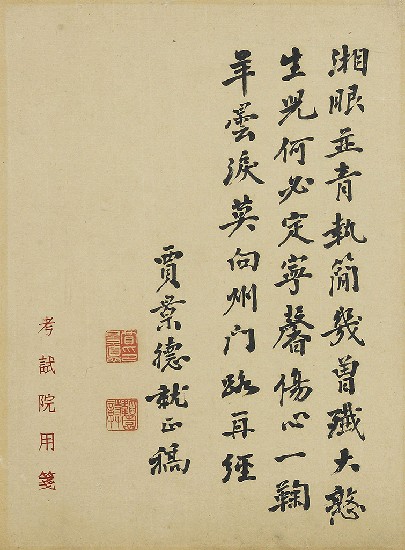 湘眼並青執簡幾曾殲大憝
生兒何必定寧馨傷心一鞠
羊曇淚莫向州門路再經
賈景德就正稿
考試院用箋